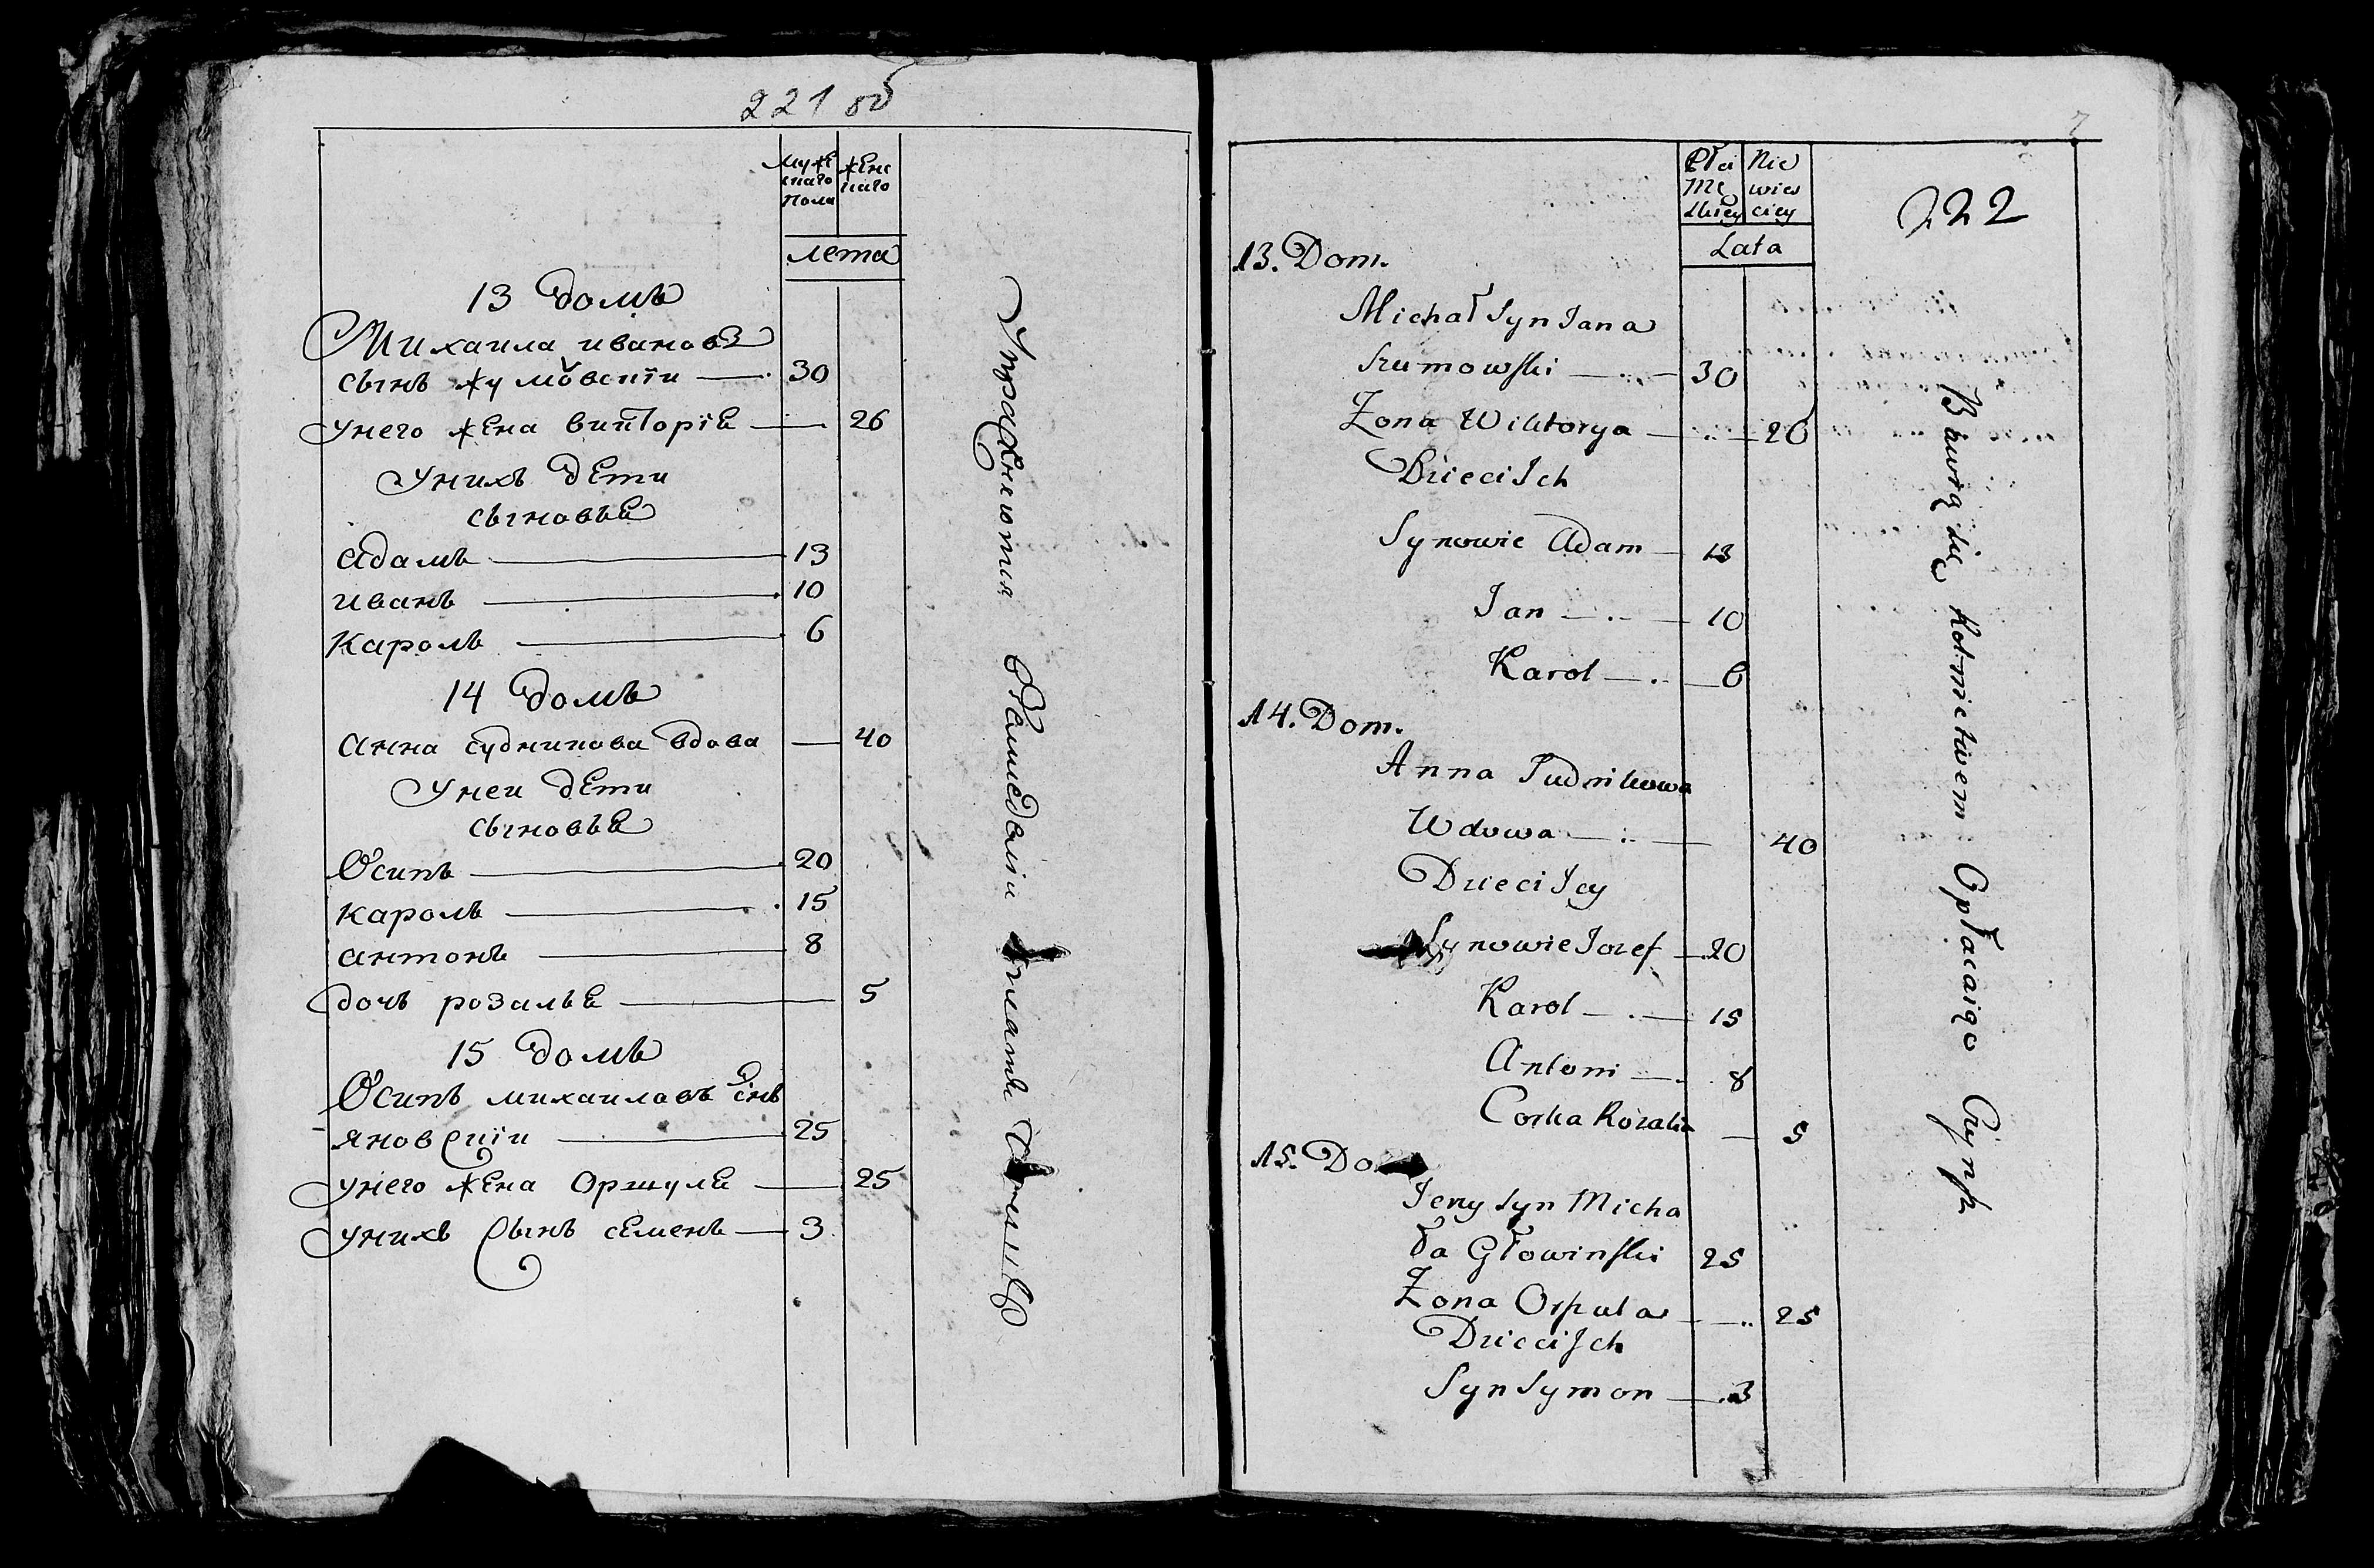 221 об
Муже
скаго
Пола
жене
каго
лета
13 домъ
Михаила ивановъ
сынъ жумовскіи 30
унего жена викторiе 26
унихъ дети
сыновье
адамъ 13
иванъ 10
кароль 6
14 домъ
анна судникова вдова 40
унеи дети
сыновье
Осипъ 20
кароль 15
антонъ 8
дочь розалье 5
15 домъ
Осипъ михаиловъ снъ
яновскіи 25
унего жена оршуле 25
унихъ сынъ семенъ 3
Упражняются взамледелiи платя Чиншъ
7
222
Płci
Mę
skiey
Nie
wies
ciey
Lata
13. Dom.
Michał Syn Jana
Szumowski 30
Zona Wiktorya 26
Dzieci Ich
Synowie Adam 13
Jan 10
Karol 6
14. Dom.
Anna Sudnikowa
Wdowa 40
Dzieci Jey
Synowie Jozef 20
Karol 15
Antoni 8
Corka Rozalia 5
15. Do
Jerzy Syn Micha
ła Głowinski 25
Zona Orszula 25
Dzieci Ich
Syn Symon 3
Bawią się Rolnictwem Opłacaiąc Czynsz